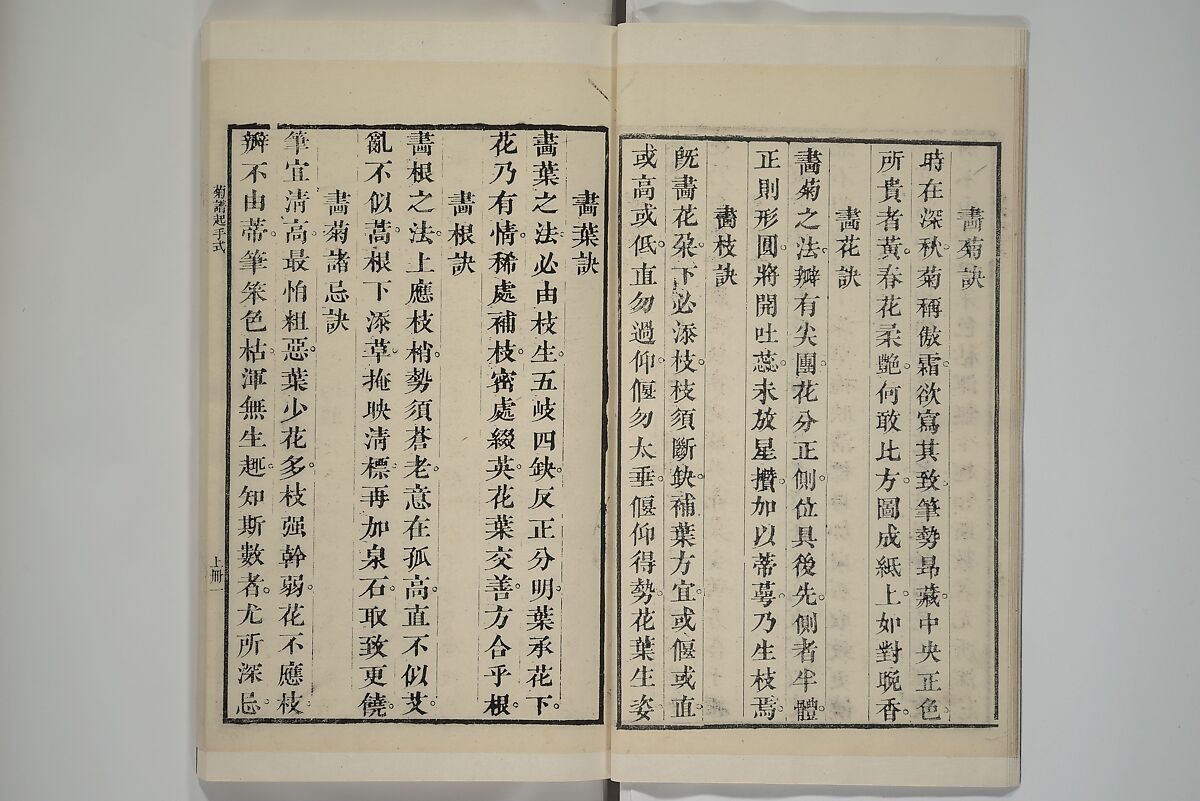 畫菊訣
時在深秋。菊稱傲霜。欲寫其致。筆勢昻藏。中央正色。
所貴者黃。春花柔艷。何敢比方。圖成紙上。如對晚香。
畫花訣
畫菊之法。瓣有尖團。花分正側。位具後先。側者半體。
正則形圓。將開吐蕊。未放星攢。加以蒂蕚。乃生枝焉。
畫枝訣
旣畫花朶。下必添枝。枝須斷缺。補葉方宜。或偃或直。
或高或低。直勿過仰。偃勿太垂。偃仰得勢。花葉生姿。
畫葉訣
畫葉之法。必由枝生。五岐四缺。反正分明。葉承花下。
花乃有情。稀處補枝。密處綴英。花葉交善。方合乎根。
畫根訣
畫根之法。上應枝梢。勢須蒼老。意在孤高。直不似艾。
亂不似蒿。根下添草。掩映清標。再加泉石。取致更饒。
畫菊諸忌訣
筆宜清高。最怕粗惡。葉少花多。枝强幹弱。花不應枝。
瓣不由蒂。筆笨色枯。渾無生趣。知斯數者。尤所深忌。
菊譜起手式
上冊一